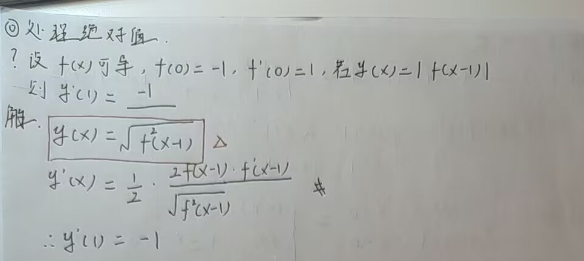 ◎处理绝对值.
? 设 f(x) 可导, f(0) = -1, f'(0) = 1, 若 y(x) = |f(x-1)|
则 y'(1) = -1
解.
y(x) = √f²(x-1) △
y'(x) = 1/2 · 2f(x-1)·f'(x-1) / √f²(x-1)
∴ y'(1) = -1